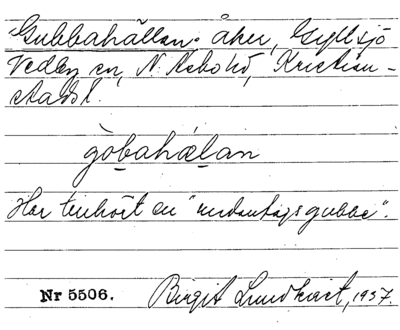 Gubbahällan: åker, Gyllsjö
Vedby sn, N. Åsbo hd, Kristian-
stads l.
gòbahælan
Har tillhört en "undantagsgubbe".
Nr 5506.
Birgit Lundkvist, 1937.